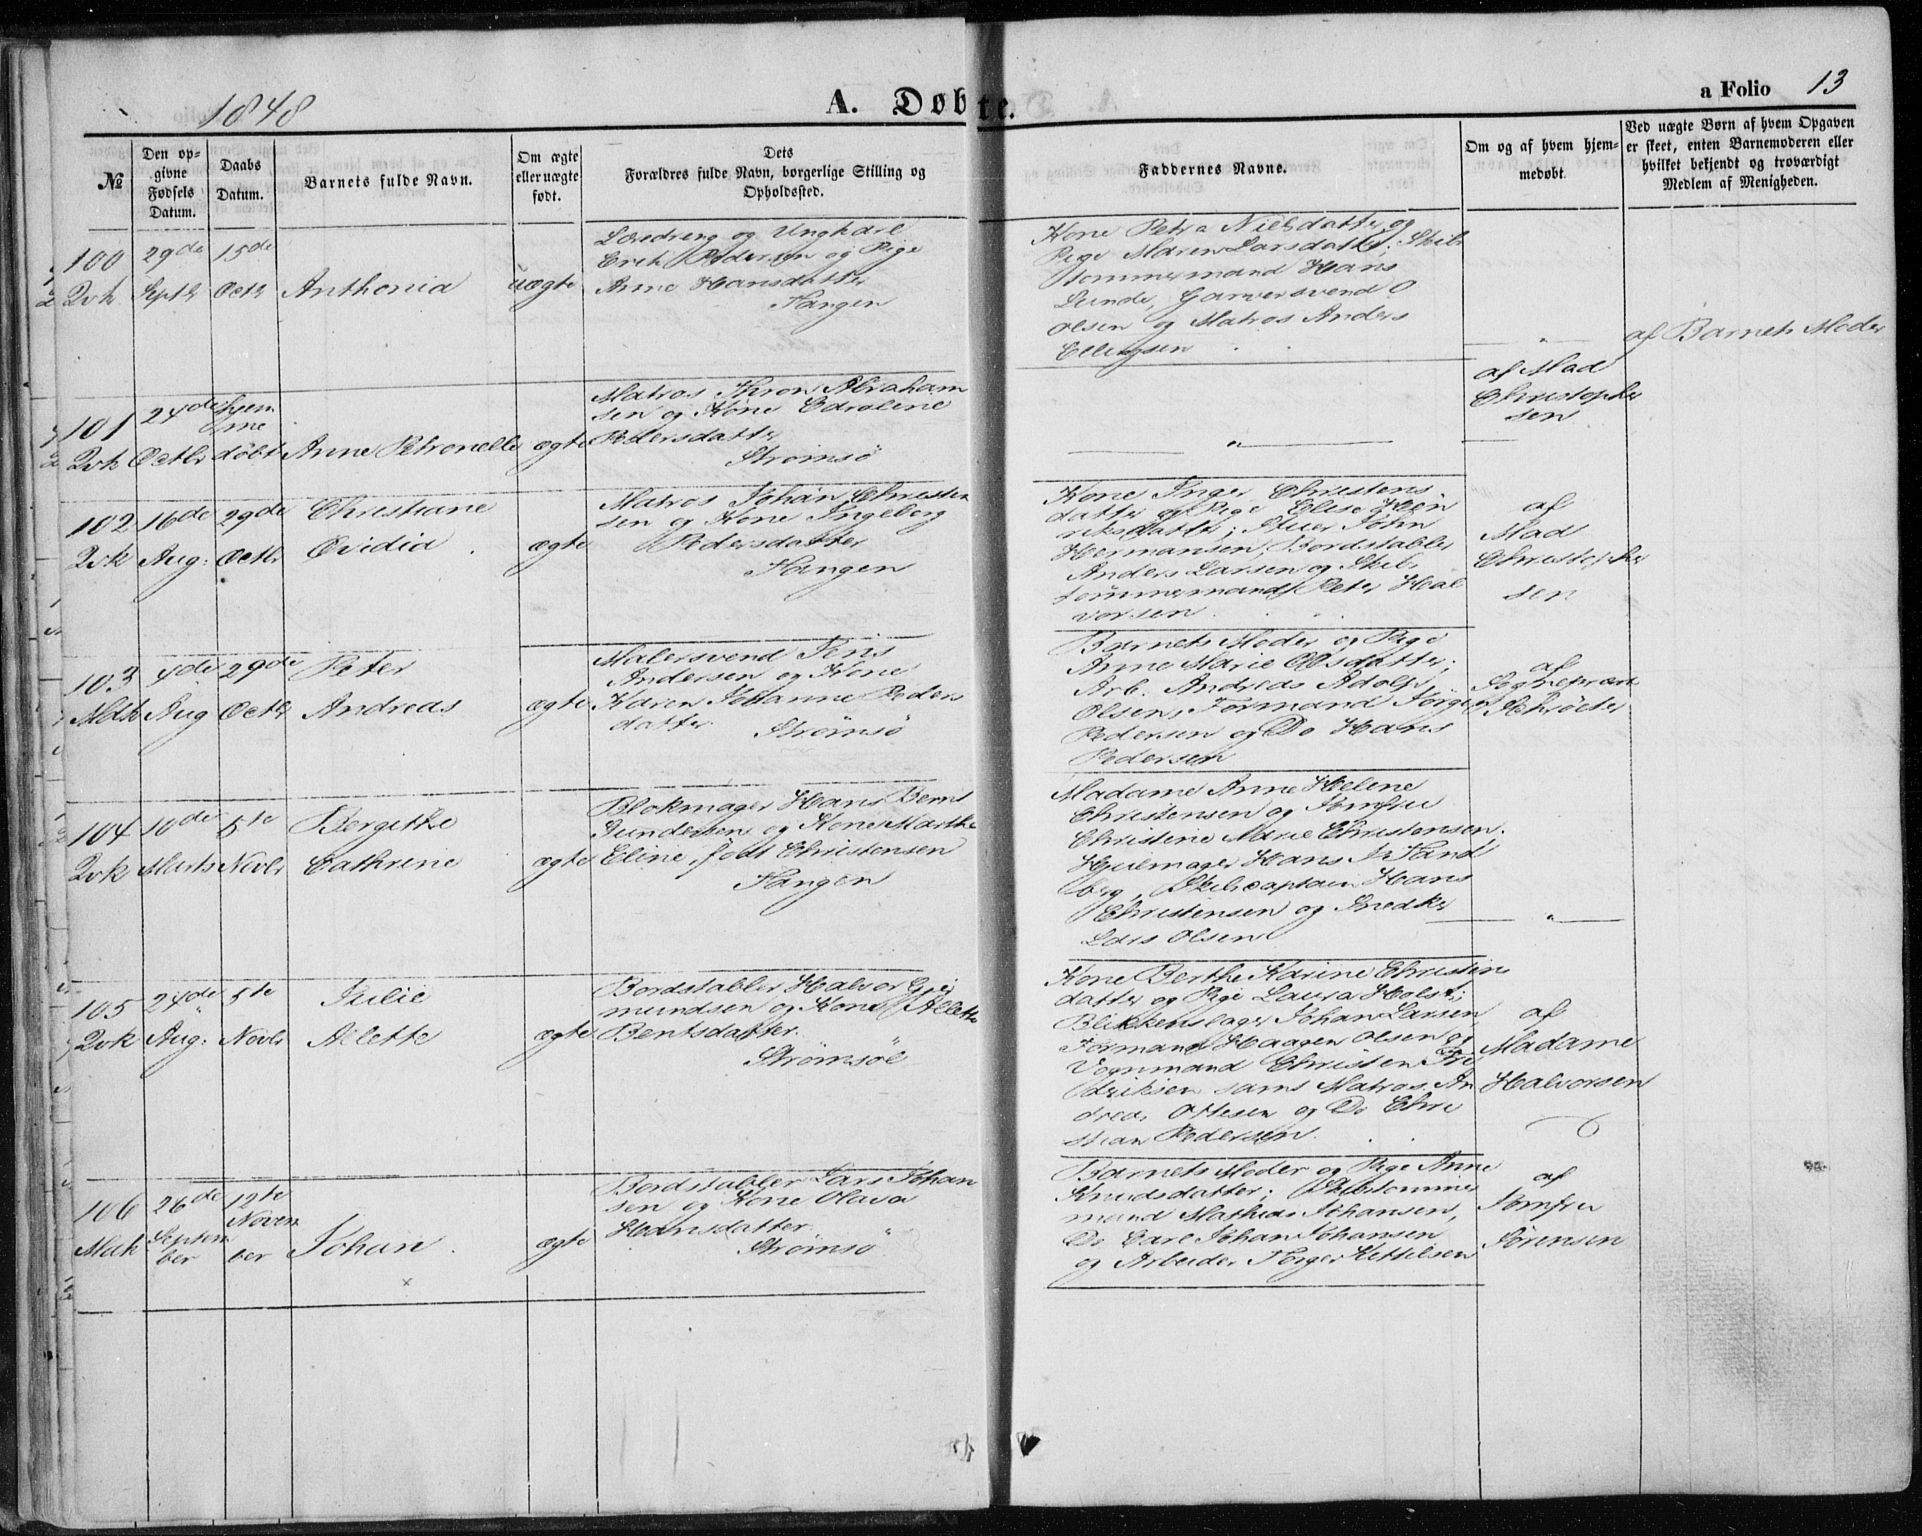 1848
A. Døbte.
a Folio 13
№
Den opgivne Fødsels Datum.
Daabs Datum.
Barnets fulde Navn.
Om ægte eller uægte født.
Dets Forældres fulde Navn, borgerlige Stilling og Opholdssted.
Faddernes Navne.
Om og af hvem hjemmedøbt.
Ved uægte Børn af hvem Opgaven er skeet, enten Barnemoderen eller hvilket bekjendt og troværdigt Medlem af Menigheden.
100
Qvk
29de
Septbr
15de
Octbr
Anthonia
uægte
Læredreng og Ungkarl
Erik Pedersen og Pige
Anne Hansdatter
Tangen
Kone Petra Nielsdatter og
Pige Maren Larsdatter; Skibs
tommermand Hans
Lunde, Garversvend O
Olsen og Matros Anders
Ellingsen
"
af Barnets Moder
101
Qvk
24de
Octbr
hjem
me
døbt
Anne Petronelle
ægte
Matros Thron Abraham
sen og Kone
Pedersdatter
Strømsö
"
af Mad
Christopher
sen
102
Qvk
16de
Aug:
29de
Octbr
Christiane
Ovidia
ægte
Matros Johan Christen
sen og Kone Ingeborg
Pedersdatter
Tangen
Kone Inger Christens
datter og Pige Elise Hen
riksdatter; Stuer John
Hermansen, Bordstabler
Anders Larsen og Skibs
tømmermand Peter Hal
vorsen
af
Mad
Christopher
sen
103
Mdk
4de
Aug
29de
Octbr
Peter
Andreas
ægte
Malersvend Jens
Andersen og Kone
Karen Johanne Peders
datter Strømsö
Barnets Moder og Pige
Anne Marie Olsdatter;
Arb. Andreas Adolf
Olsen, Formand Jørgen
Pedersen og Do Hans
Pedersen
af
Sognepræst
Schrøeter
104
Qvk
10de
Marts
5te
Novbr
Bergithe
Cathrine
ægte
Blokmager Hans Bernt
Gundersen og Kone Marthe
Eline, født Christensen
Tangen
Madame Anne Helene
Christensen og Jomfru
Christine Marie Christensen.
Hjulmager Hans
berg, Skibscaptain Hans
Christensen og Snedker
Lars Olsen
"
105
Qvk
24de
Aug:
5te
Novbr
Julie
Alette
ægte
Bordstabler Halvor
mundsen og Kone Alette
Bentsdatter.
Strømsöe
Kone Berthe Karine Christens
datter og Pige Laura Holst;
Blikkenslager Johan Larsen,
Formand Haagen Olsen og
Vognmand Christen Fre
driksen samt Matros An
dreas Ottesen og Do Chri
stian Pedersen.
af
Madame
Halvorsen
106
Mdk
26de
Septem
ber
12te
Novem
ber
Johan
ægte
Bordstabler Lars Johan
sen og Kone Olava
Hansdatter.
Strømsö
Barnets Moder og Pige Anne
Knudsdatter; Skibstømmer
mand Mathias Johansen,
Do Carl Johan Johansen
og Arbeider Torger Kettilsen
af
Jomfru
Sørensen